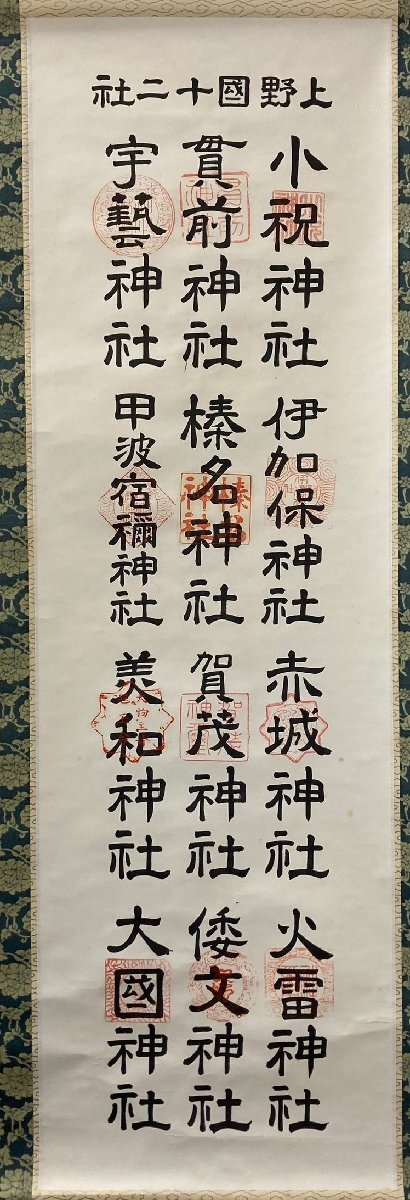 上野國十二社
小祝神社
伊加保神社
赤城神社
火雷神社
貫前神社
榛名神社
賀茂神社
倭文神社
宇藝神社
甲波宿禰神社
美和神社
大國神社